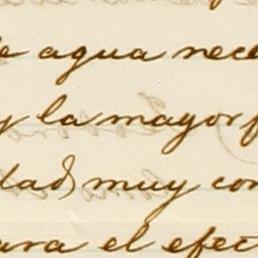 de agua nece
y la mayor f
dad muy con
para el efect